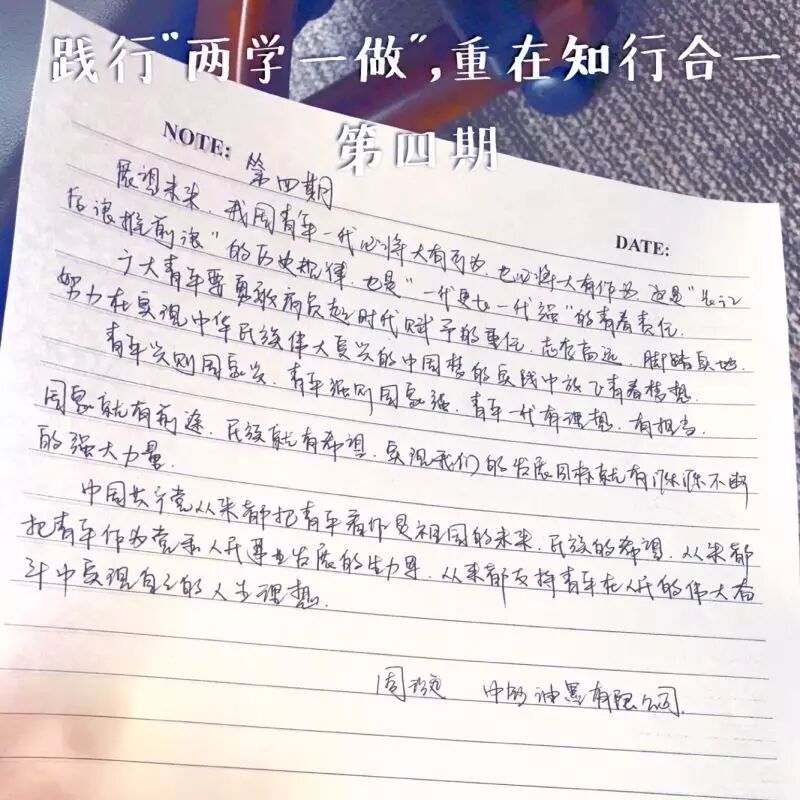 践行"两学一做",重在知行合一
第四期
NOTE: 第四期
DATE:
展望未来，我国青年一代必将大有可为，也必将大有作为。这是"长江
后浪推前浪"的历史规律，也是"一代更比一代强"的青春责任。
广大青年要勇敢肩负起时代赋予的重任，志存高远，脚踏实地，
努力在实现中华民族伟大复兴的中国梦的实践中放飞青春梦想。
青年兴则国家兴，青年强则国家强。青年一代有理想、有担当，
国家就有前途，民族就有希望，实现我们的发展目标就有源源不断
的强大力量。
中国共产党从来都把青年看作是祖国的未来、民族的希望，从来都
把青年作为党和人民事业发展的生力军，从来都支持青年在人民的伟大奋
斗中实现自己的人生理想。
周 油墨有限公司